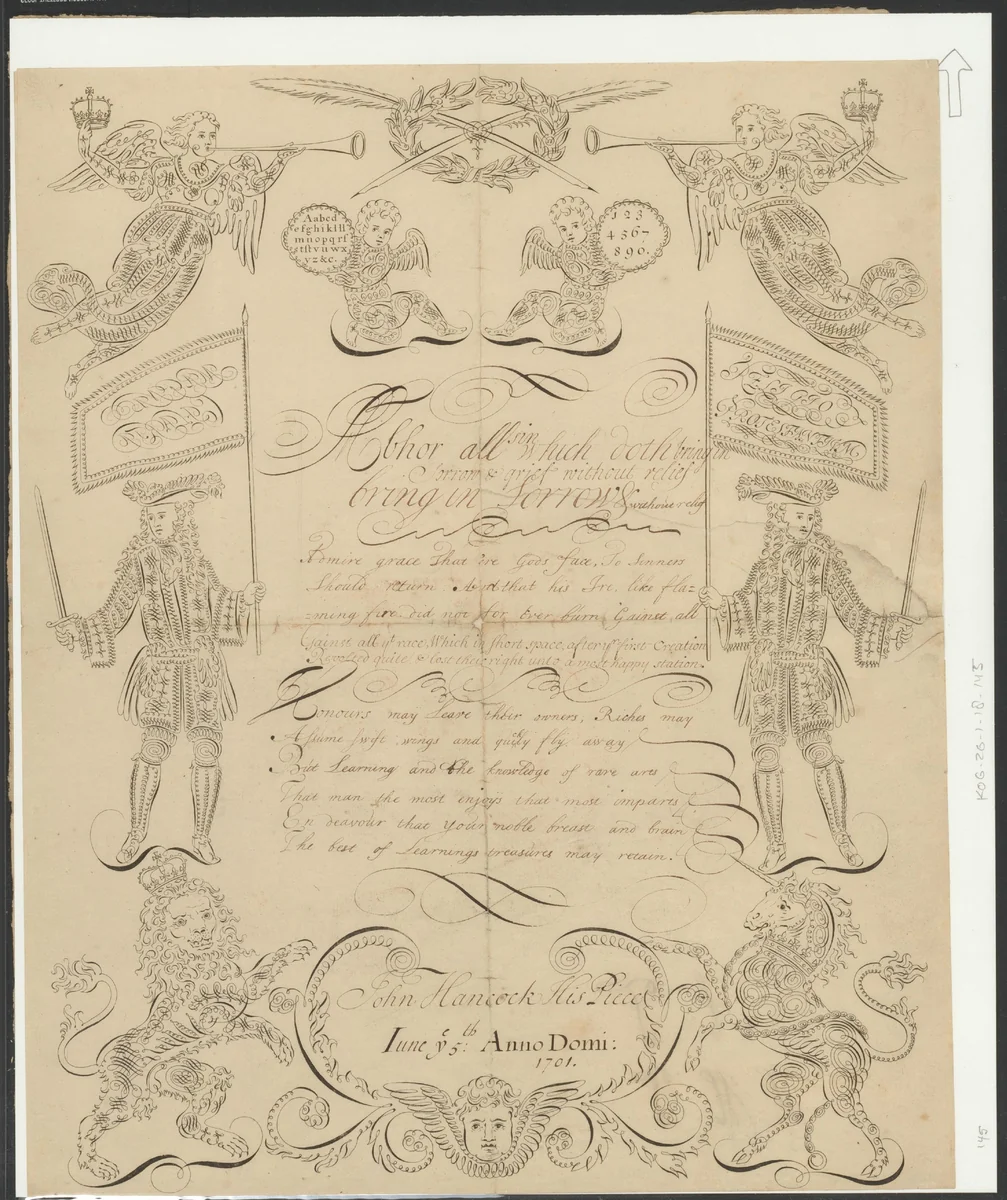 Aabcd
efghiklll
mnopqrſ
stſtvuwx
yz&c.
1 2 3
4 5 6 7
8 9 0.
Abhor all sin which doth bring in
Sorrow & grief without relief
bring in Sorrow & without relif
Admire grace That ere Gods face, To Sinners
Should return And that his Ire, like fla=
=ming fire did not for Ever burn Gainst all
Gainst all yͤ race, Which in short space, after yͤ first Creation
Revolted quite & lost their right unto a most happy station.
Honours may Leave their owners, Riches may
Assume swift wings and quickly fly away
But Learning and the knowledge of rare arts
That man the most enjoys that most imparts
En deavour that your noble breast and brain
The best of Learnings treasures may retain.
John Hancock His Piece
Iune yͤ 5:ᵗʰ Anno Domi:
1701.
KOG-26-1-18-145
145